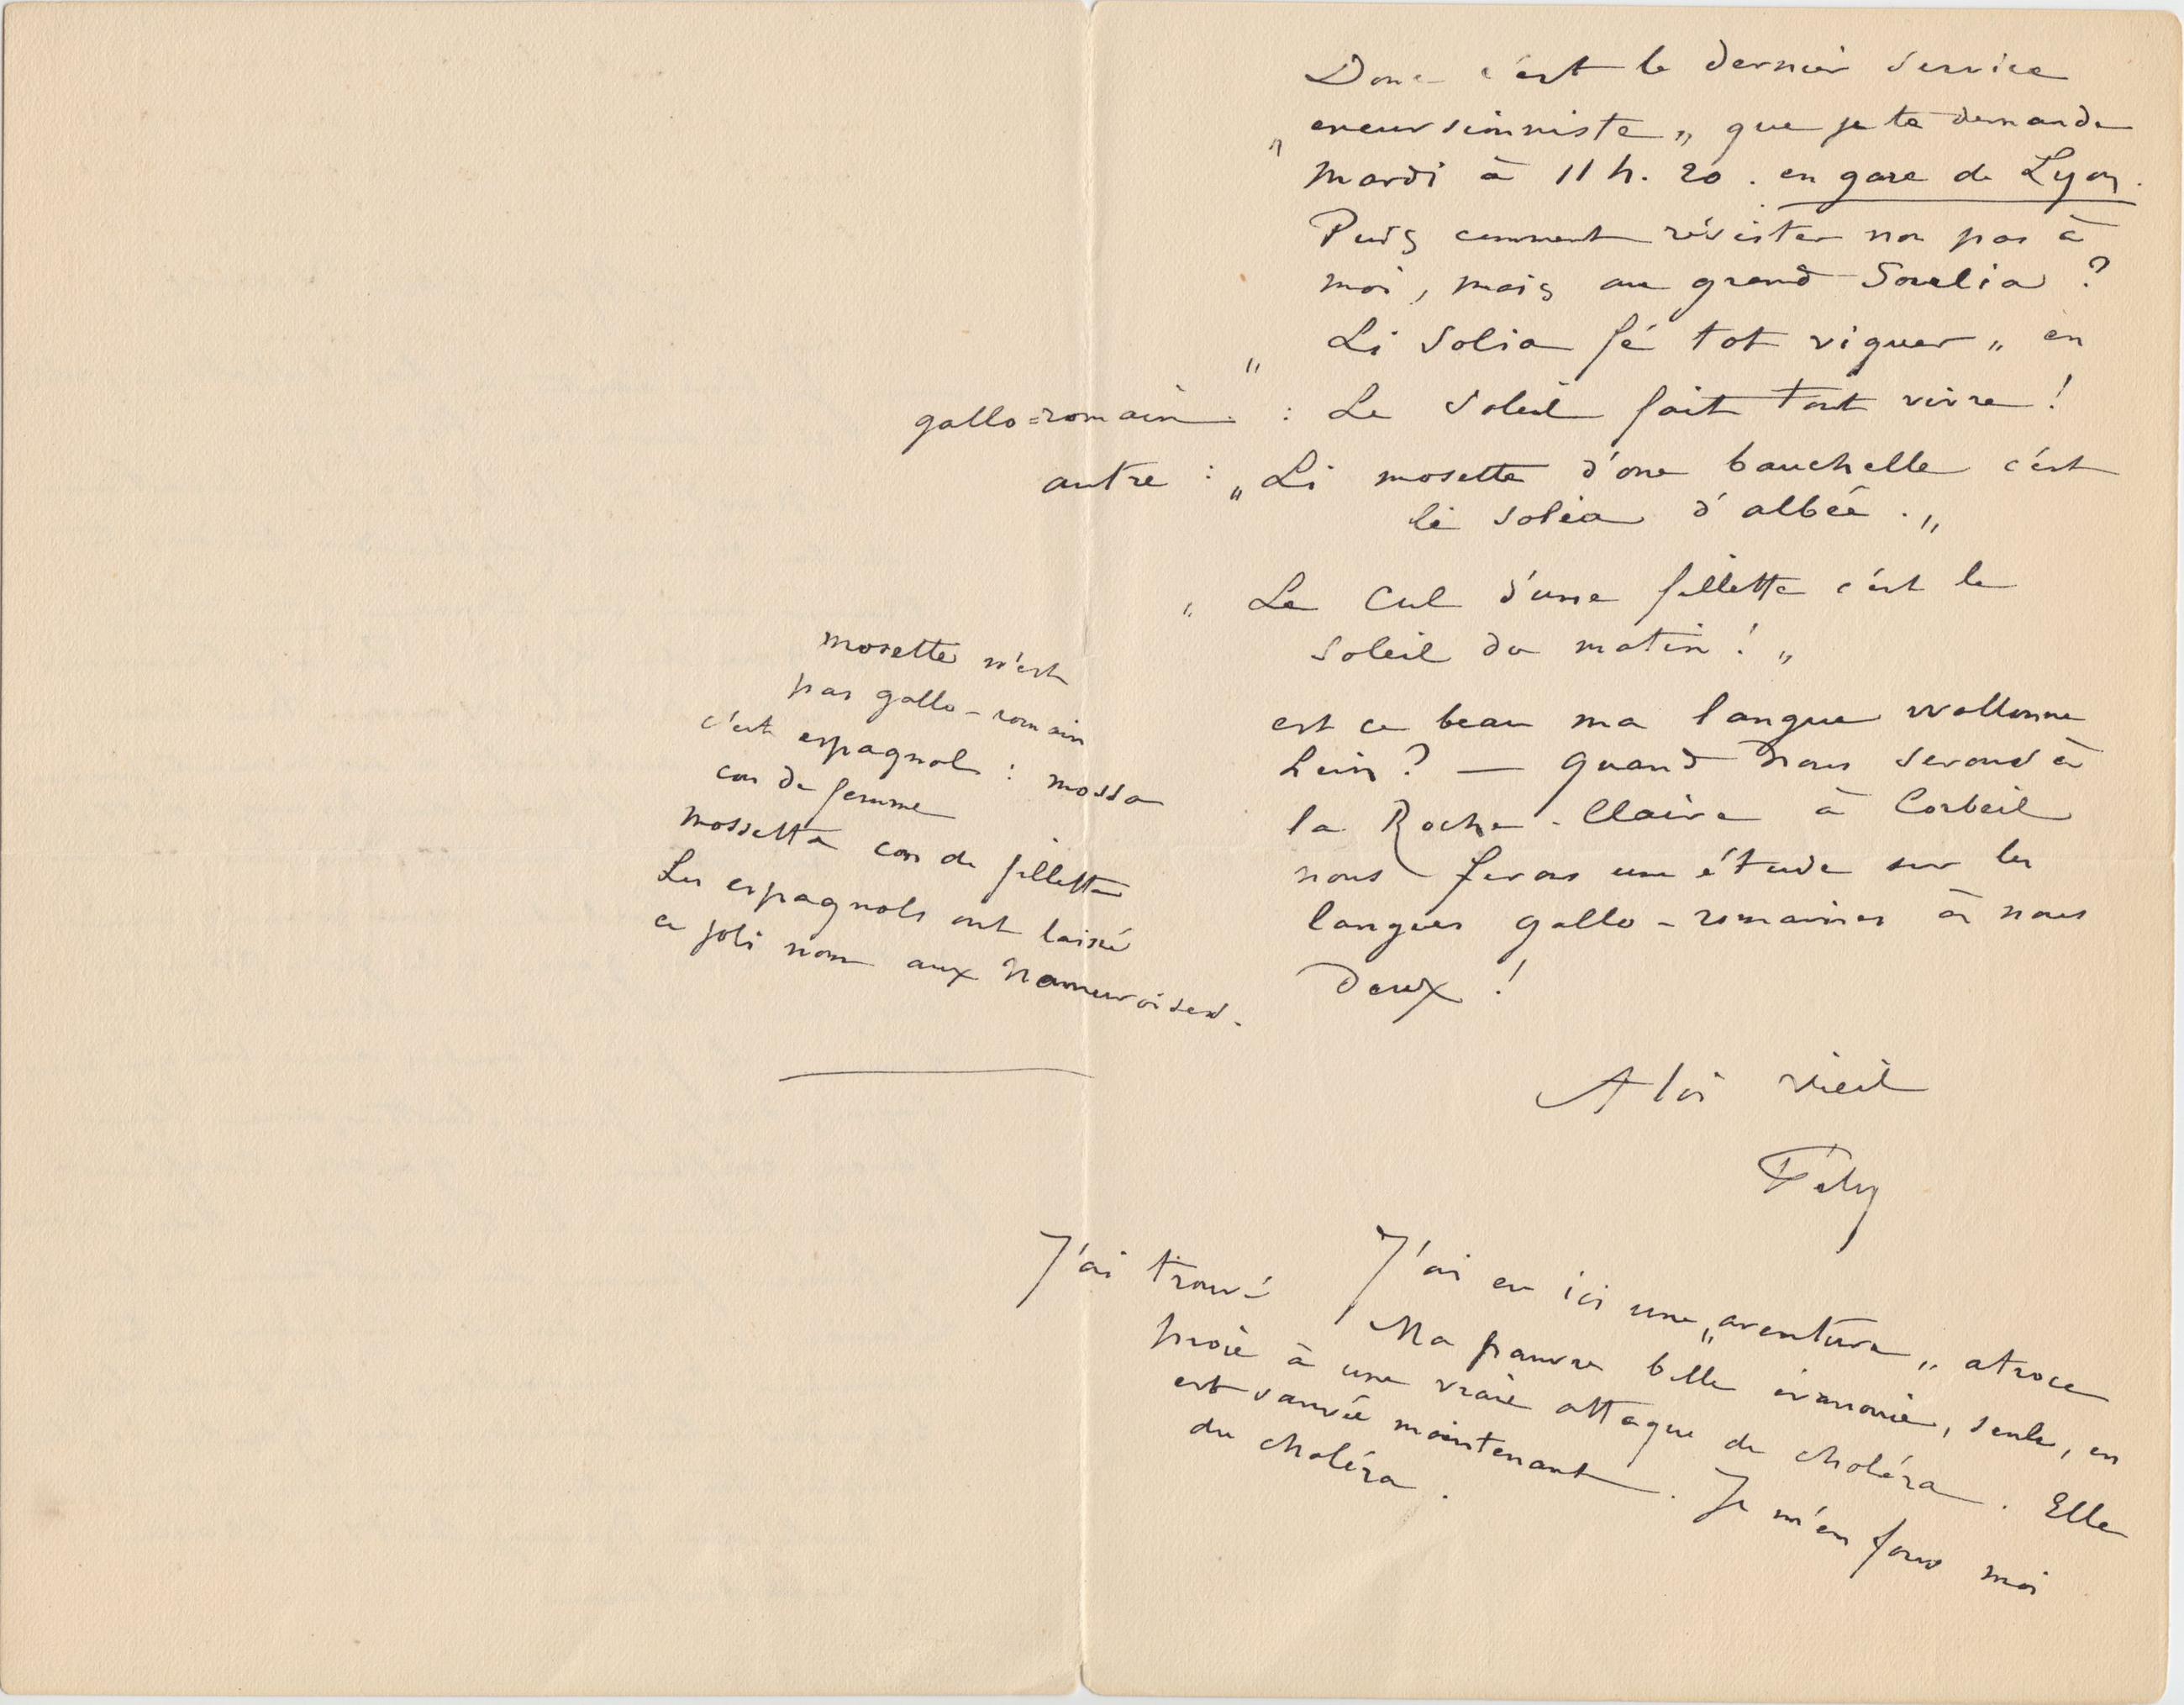 Donc c'est le dernier service
„ excursionniste „ que je te demande
mardi à 11 h. 20 . en gare de Lyon.
Puis comment résister non pas à
moi, mais au grand Soulia ?
„ Li Solia fé tot viquer „ en
gallo=romain : Le Soleil fait tout vivre !
autre : „ Li mosette d'one bauchelle c'est
li solia d'albéé . „
„ Le Cul d'une fillette c'est le
soleil du matin ! „
est ce beau ma langue wallonne
hein ? — Quand nous serons à
la Roche-Claire à Corbeil
nous ferons une étude sur les
langues gallo-romaines à nous
Deux !
mosette n'est
pas gallo-romain
c'est espagnol : mossa
con de femme
mossetta con de fillette
Les espagnols ont laissé
ce joli nom aux Namuroises.
A toi vieil
Fély
J'ai eu ici une „aventure „ atroce
J'ai trouvé Ma pauvre belle évanouie, seule, en
proie à une vraie attaque de choléra . Elle
est sauvée maintenant . Je m'en fous moi
du choléra .